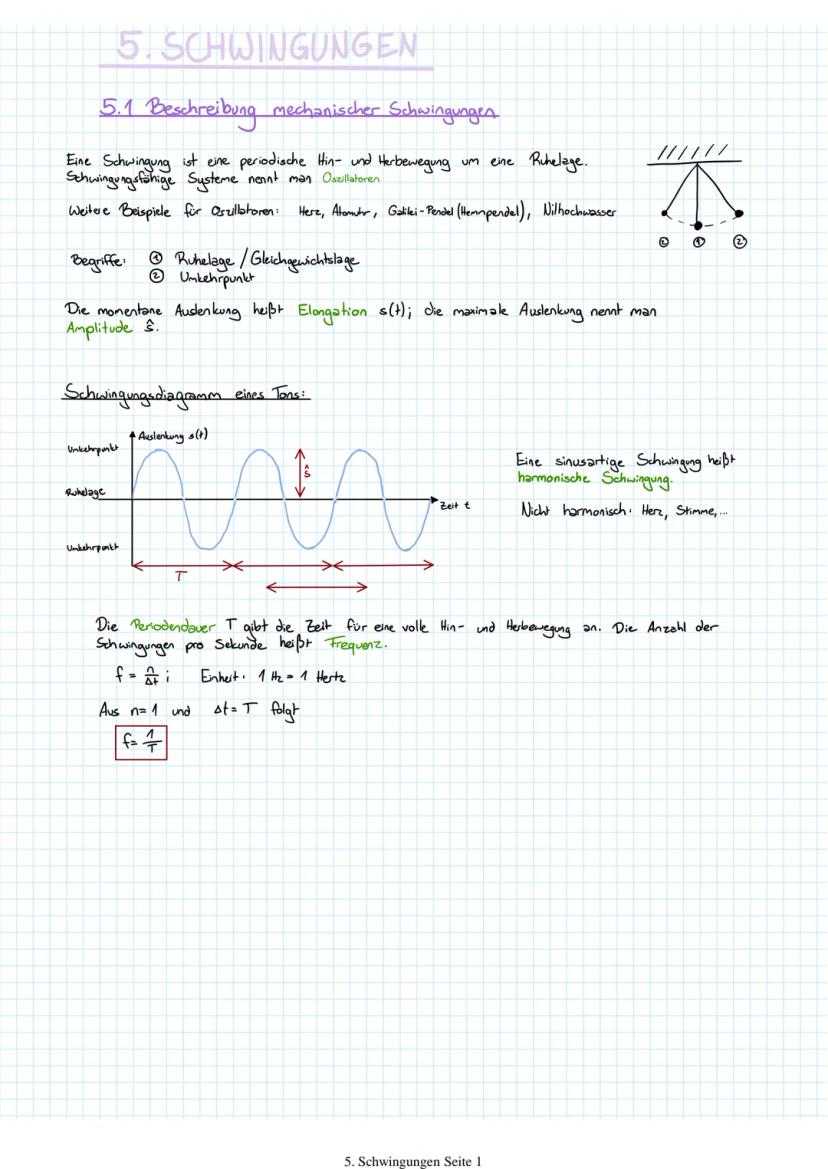 5. SCHWINGUNGEN
5.1 Beschreibung mechanischer Schwingungen
Eine Schwingung ist eine periodische Hin- und Herbewegung um eine Ruhelage.
Schwingungsfähige Systeme nennt man Oszillatoren
Weitere Beispiele für Oszillatoren: Herz, Atomuhr, Galilei-Pendel (Hemmpendel), Nilhochwasser
② ① ②
Begriffe: ① Ruhelage / Gleichgewichtslage
② Umkehrpunkt
Die momentane Auslenkung heißt Elongation s(t); die maximale Auslenkung nennt man
Amplitude ŝ.
Schwingungsdiagramm eines Tons:
Auslenkung s(t)
Umkehrpunkt
ŝ
Ruhelage
Zeit t
Umkehrpunkt
T
Eine sinusartige Schwingung heißt
harmonische Schwingung.
Nicht harmonisch: Herz, Stimme,...
Die Periodendauer T gibt die Zeit für eine volle Hin- und Herbewegung an. Die Anzahl der
Schwingungen pro Sekunde heißt Frequenz.
f = n/Δt ; Einheit: 1 Hz = 1 Hertz
Aus n=1 und Δt = T folgt
f = 1/T
5. Schwingungen Seite 1